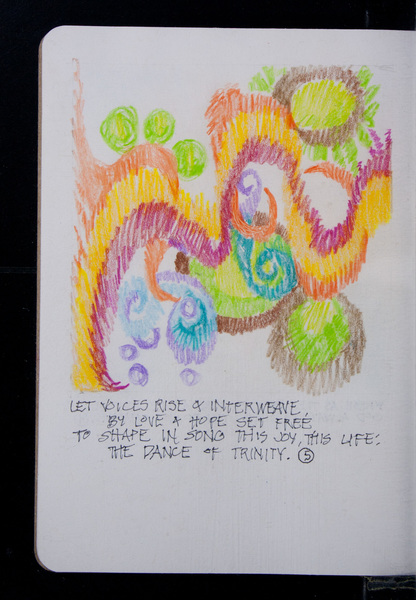 LET VOICES RISE & INTERWEAVE,
BY LOVE & HOPE SET FREE
TO SHAPE IN SONG THIS JOY, THIS LIFE:
THE DANCE OF TRINITY. 5